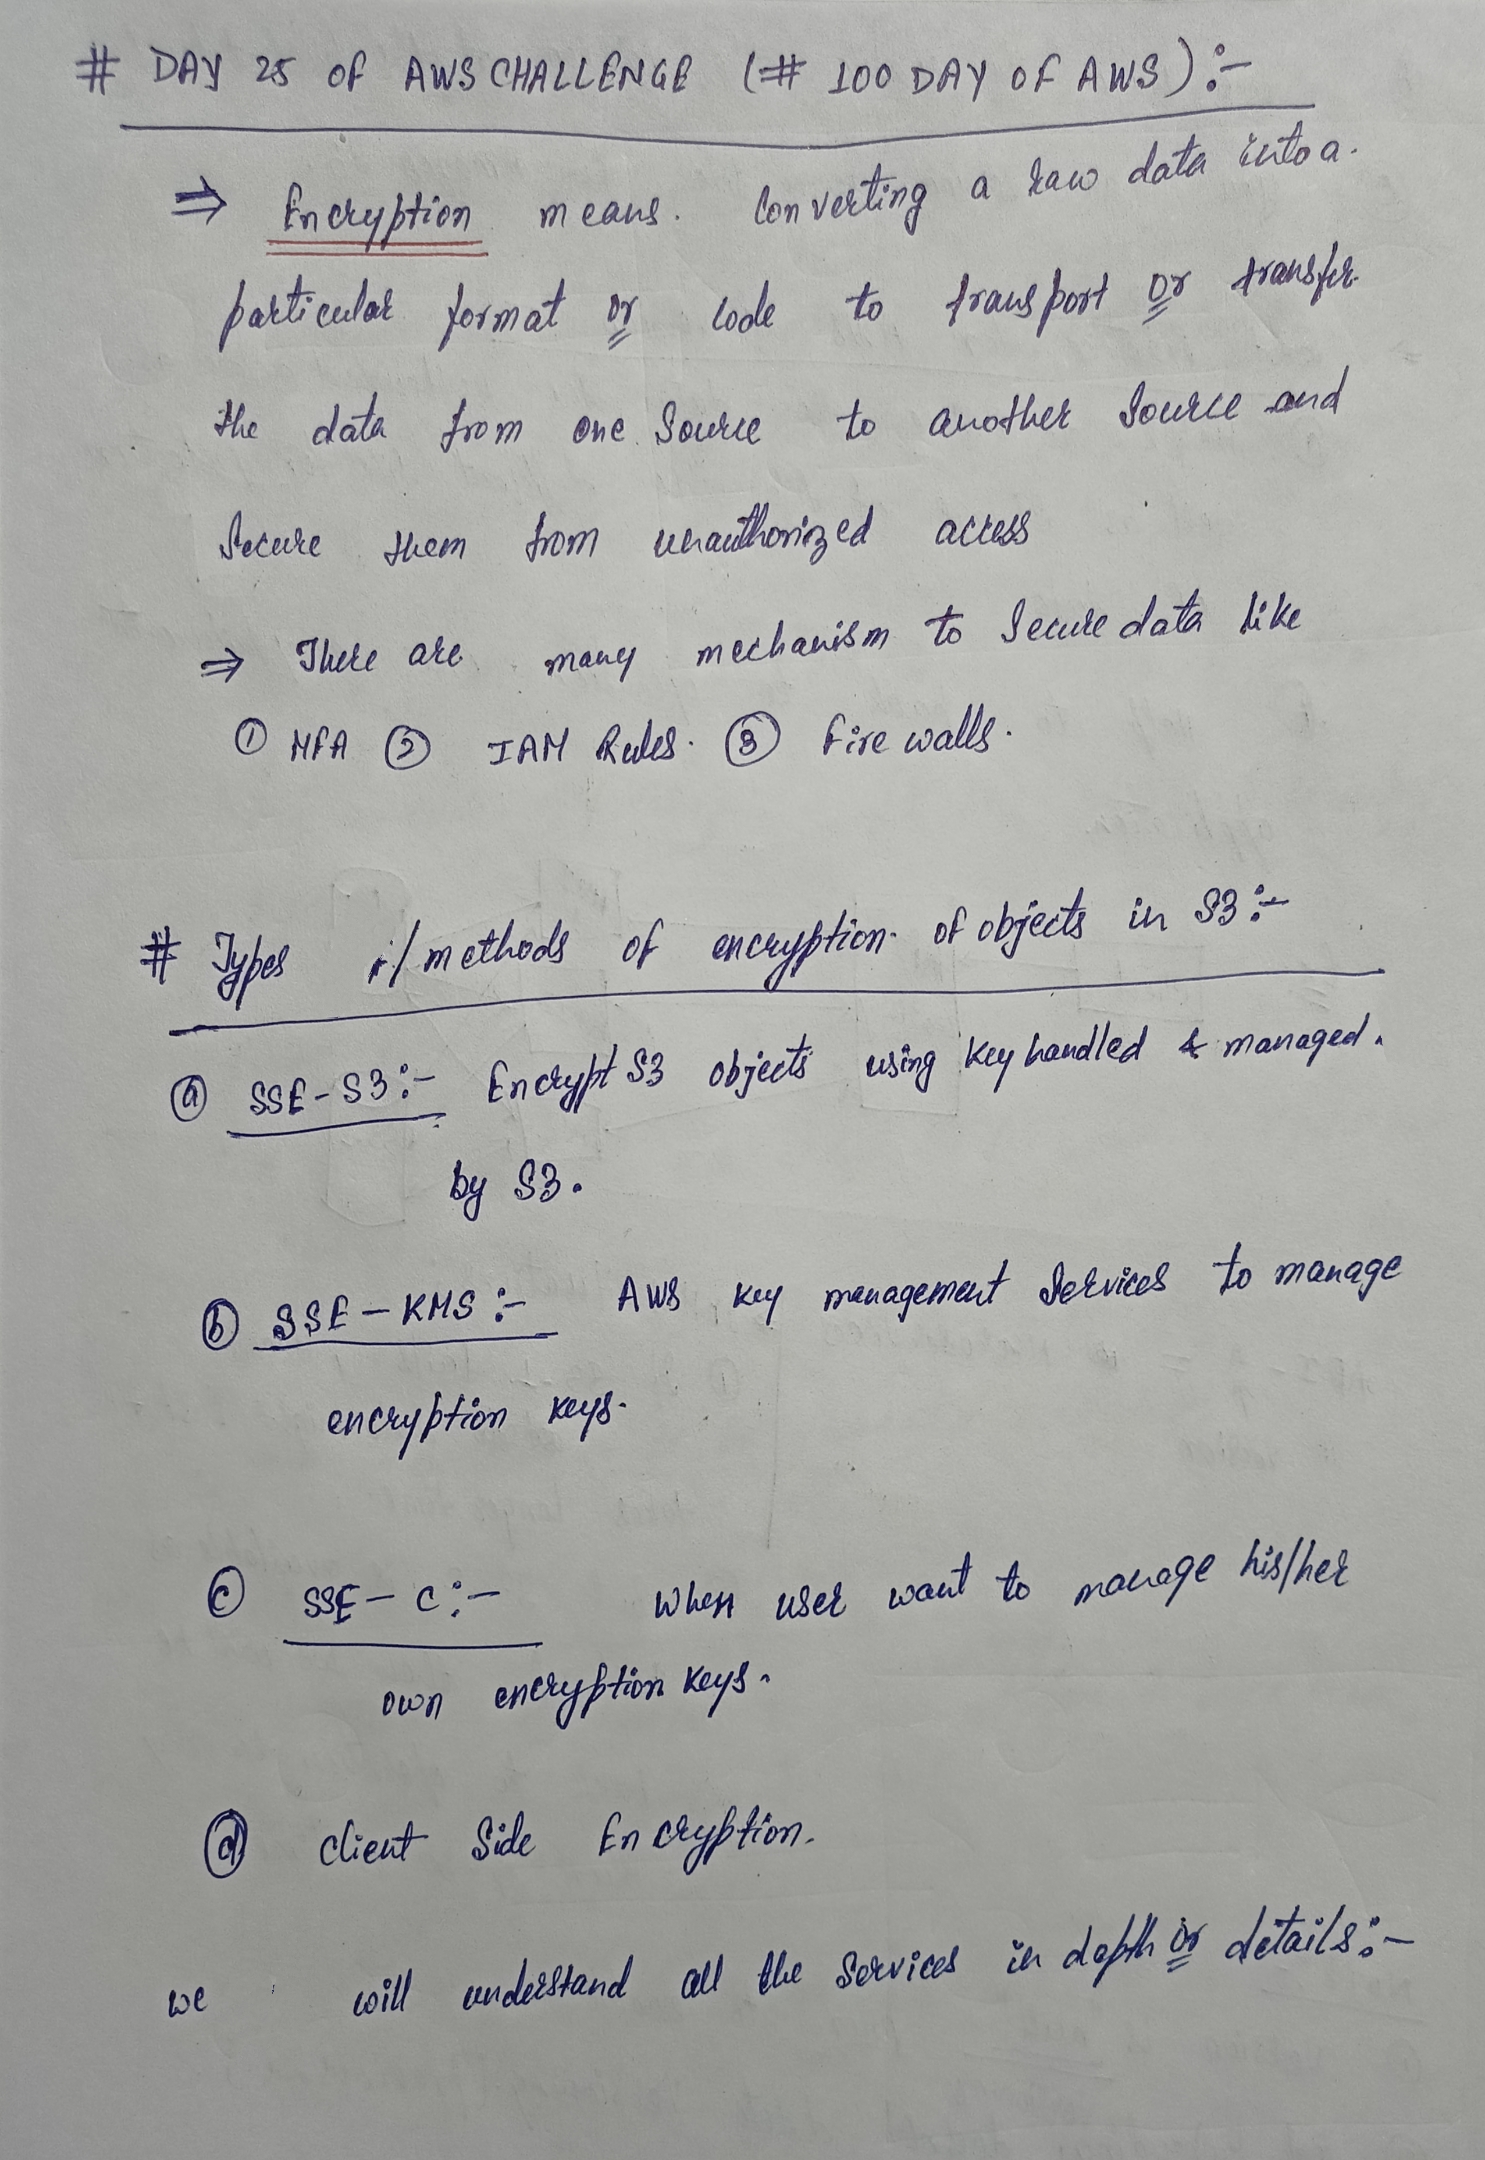 # DAY 25 OF AWS CHALLENGE (# 100 DAY OF AWS):-
⇒ Encryption means. Converting a raw data into a.
particular format or code to transport or transfer
the data from one source to another source and
Secure them from unauthorized access
⇒ There are many mechanism to secure data like
① MFA ② IAM Rules. ③ Fire walls.
# Types /methods of encryption of objects in S3:-
ⓐ SSE-S3:- Encrypt S3 objects using key handled & managed.
by S3.
ⓑ SSE-KMS:- AWS key management services to manage
encryption keys.
ⓒ SSE-C:- When user want to manage his/her
own encryption keys.
ⓓ Client Side Encryption.
we will understand all the services in depth or details:-